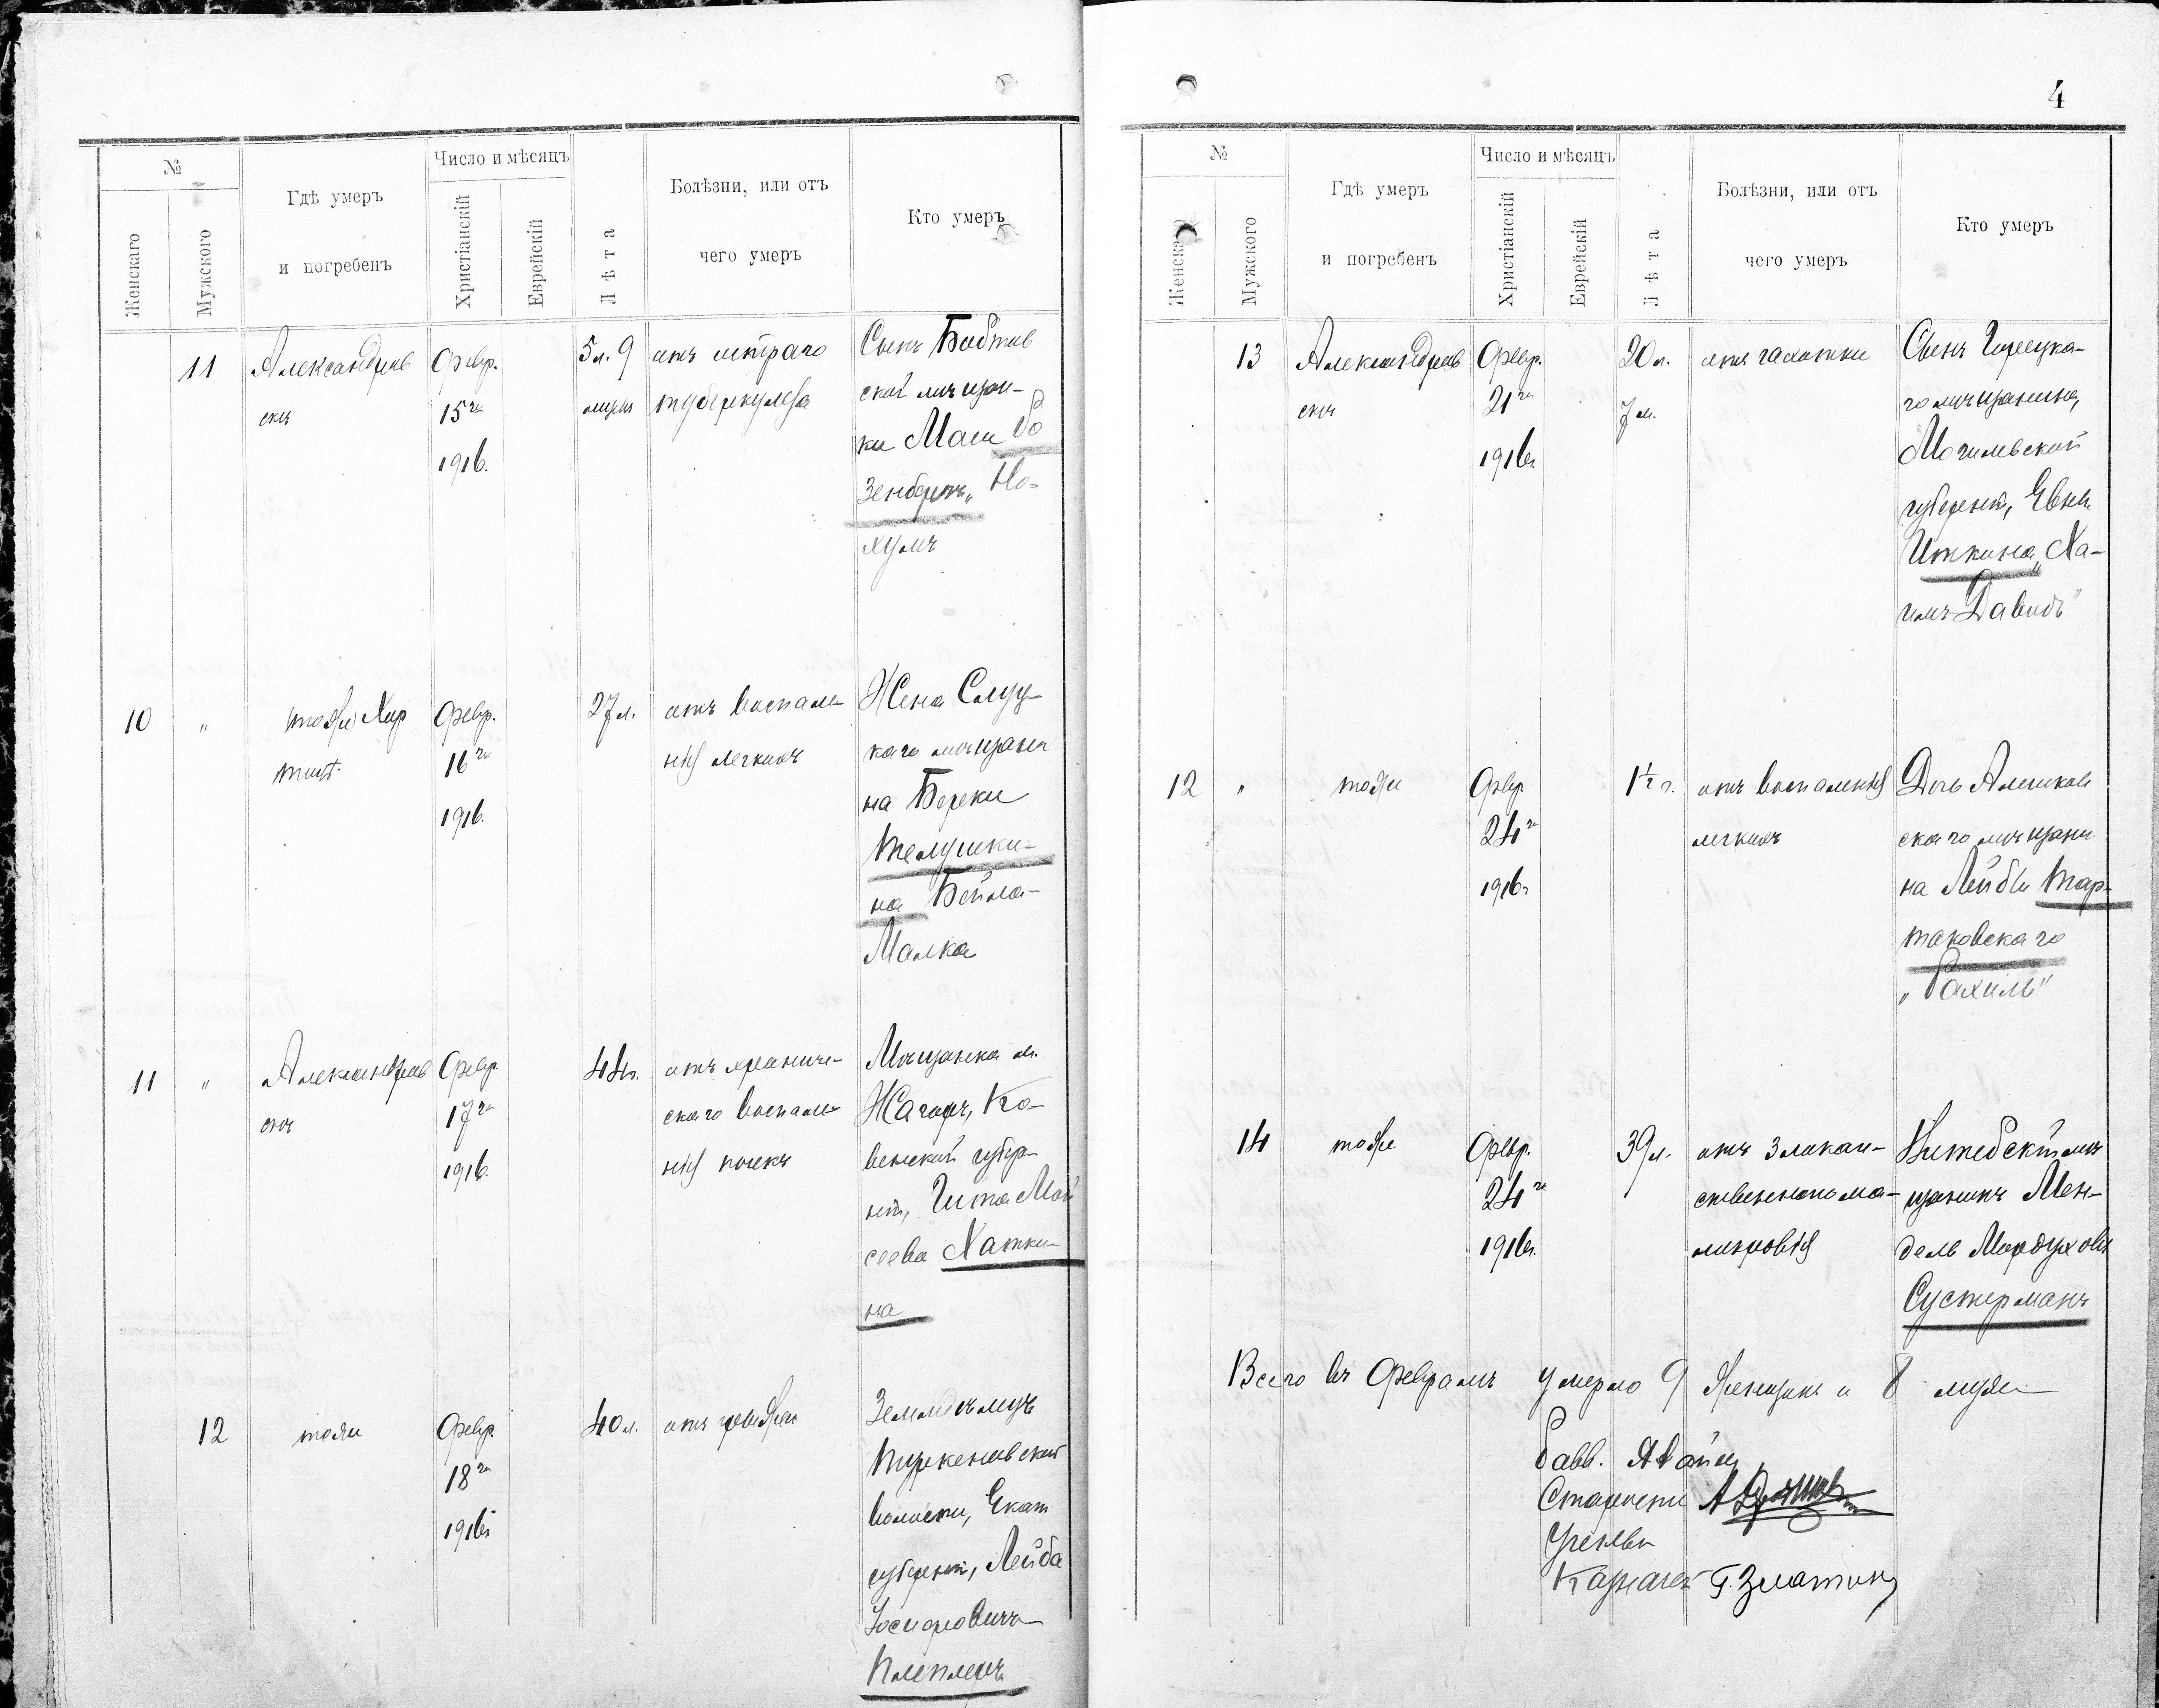 №
Число и мѣсяцъ
Женскаго
Мужского
Гдѣ умеръ
и погребенъ
Христіанскій
Еврейскій
Лѣта
Болѣзни, или отъ
чего умеръ
Кто умеръ
11
Александров
скъ
Февр.
15го
1916.
5л. 9
отъ остраго
туберкулеза
Сынъ
ской мѣщан-
ки Маш Ро
зенберъ „Но-
хумъ
10
"
тоже
Февр.
16го
1916.
27л.
отъ воспале-
нія легкихъ
Жена Слуц-
каго мѣщани
на Береки
Телушки-
на Бейла-
Малка
11
"
Александров
скъ
Февр.
17го
1916.
44г.
отъ хрониче-
скаго воспале-
нія почекъ
Мѣщанка м.
Жагоръ, Ко-
венской губер-
ніи, Гита Мой
сеева Хатки-
на
12
тоже
Февр.
18го
1916г.
40л.
отъ
Земледѣлецъ
волости, Екат
губерніи, Лейба
Іосифовичъ
Плеплеръ
4
№
Число и мѣсяцъ
Женскаго
Мужского
Гдѣ умеръ
и погребенъ
Христіанскій
Еврейскій
Лѣта
Болѣзни, или отъ
чего умеръ
Кто умеръ
13
Александров
скъ
Февр.
21го
1916г.
20л.
7м.
отъ чахотки
Сынъ Горецка-
го мѣщанина,
Могилевской
губерніи, Евны
Иткина „Ха-
имъ-Давидъ"
12
"
тоже
Февр
24го
1916г
1½г.
отъ воспаленія
легкихъ
Дочь Алешков
скаго мѣщани
на Лейбы Тар-
таковскаго
„Рахиль"
14
тоже
Февр.
24го
1916г.
39л.
отъ злокаче-
ственного ма-
локровія
Витебскій мѣ
щанинъ Мен-
дель Мордухов
Сустерманъ
Всего въ Февралѣ умерло 9 женщинъ и 8 мужч
Равв.
Старосты
Ученый
Казначей Г. Златкинъ